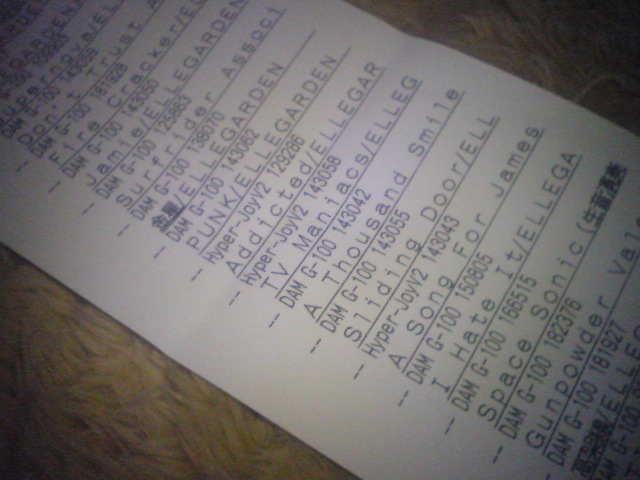 Supernova/EL
DAM G-100
Don't Trust A
-- DAM G-100 181928
Fire Cracker/EL
-- DAM G-100
Jamie/ELLEGARDEN
-- DAM G-100 125863
Surfrider Associ
-- DAM G-100 138070
/ELLEGARDEN
-- DAM G-100 143062
PUNK/ELLEGARDEN
-- Hyper-JoyV2 129286
Addicted/ELLEGAR
-- Hyper-JoyV2 143058
TV Maniacs/ELLEG
-- DAM G-100 143042
A Thousand Smile
-- DAM G-100 143055
Sliding Door/ELL
-- Hyper-JoyV2 143043
A Song For James
-- DAM G-100 150805
I Hate It/ELLEGA
-- DAM G-100 166515
Space Sonic (生音演奏
-- DAM G-100 182376
Gunpowder Vale
-- DAM G-100 181927
/ELLEG
-- DAM G-100